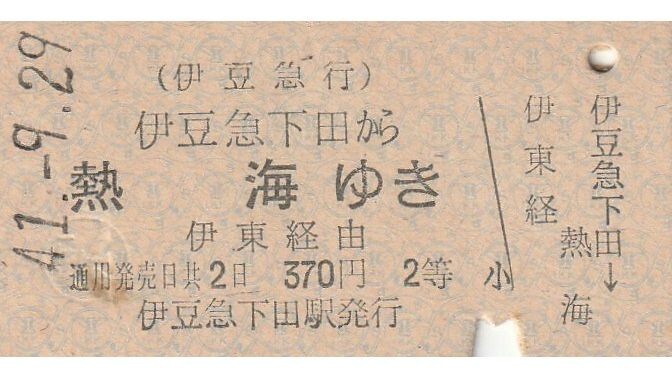 41.-9.29
(伊豆急行)
伊豆急下田から
熱 海 ゆき
伊東経由
通用発売日共2日 370円 2等
伊豆急下田駅発行
小
伊東経
伊豆急下田→
熱海